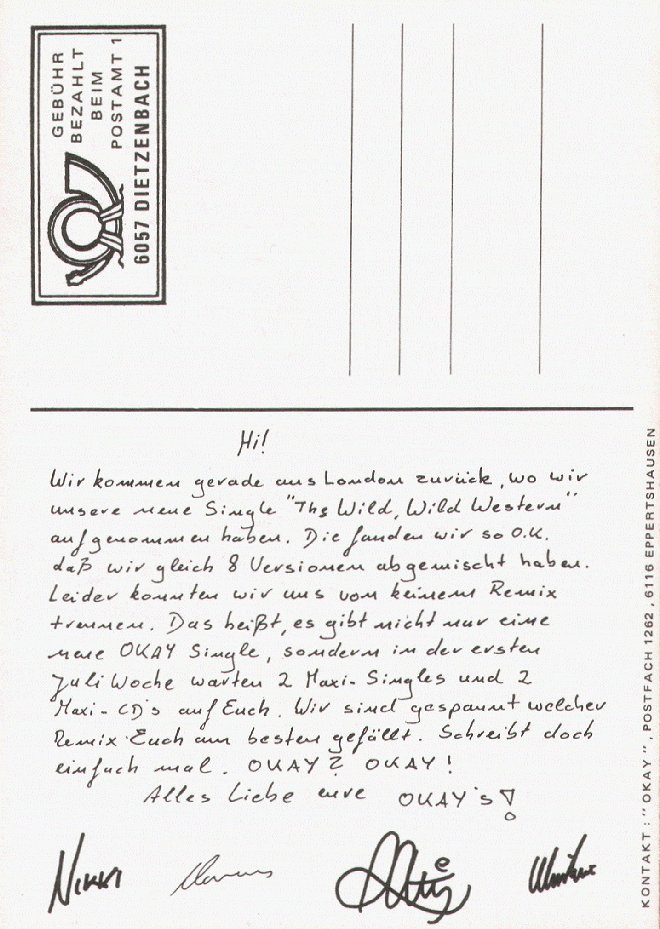 GEBÜHR
BEZAHLT
BEIM
POSTAMT 1
6057 DIETZENBACH
Hi!
Wir kommen gerade aus London zurück, wo wir
unsere neue Single "The Wild, Wild Western"
aufgenommen haben. Die fanden wir so O.K.
daß wir gleich 8 Versionen abgemischt haben.
Leider konnten wir uns von keinem Remix
trennen. Das heißt, es gibt nicht nur eine
neue OKAY Single, sondern in der ersten
Juli Woche warten 2 Maxi-Singles und 2
Maxi-CD's auf Euch. Wir sind gespannt welcher
Remix Euch am besten gefällt. Schreibt doch
einfach mal. OKAY? OKAY!
Alles Liebe eure OKAY's!
NIKKI
KONTAKT: "OKAY", POSTFACH 1262, 6116 EPPERTSHAUSEN